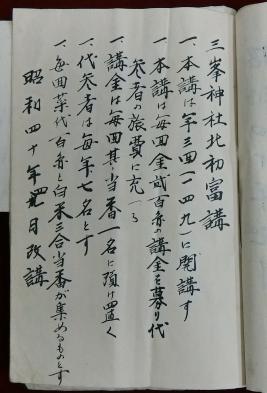 三峯神社北初富講
一、本講は年三回(一四九)に開講す
一、本講は毎回金貮百円の講金を募り代
参者の旅費に充つる
一、講金は毎回其当番一名に預け置く
一、代参者は毎年七名とす
一、毎回菓代百円と白米三合当番が集めるものとす
昭和四十年四月九日改講